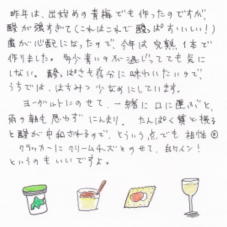 昨年は、出始めの青梅でも作ったのですが、
酸が強すぎて(これはこれで酸っぱすいいい!)
歯が心配になったので、今年は完熟1本で
作りました。多少青いのが混じってても気に
しない。酸っぱさも存分に味わいたいので、
うちでは、はちみつ少なめにしています。
ヨーグルトにのせて、一緒に口に運ぶと、
両の頬も思わずにんまり。たんぱく質と様子
と酸が中和されるので、という点でも相性◎
クラッカーにクリームチーズとのせて、白ワイン!
というのもいいですよ。